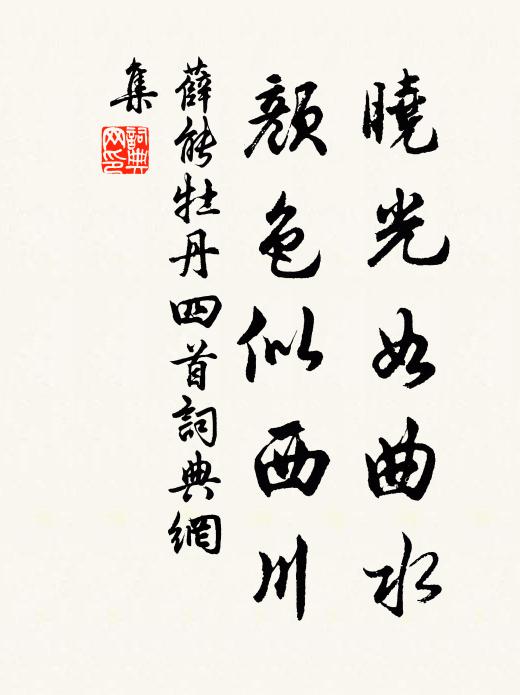 曉光如曲水
顏色似西川
薛能牡丹四首詞典網
集
詞典網印